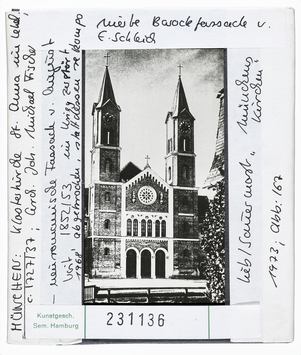 MÜNCHEN: Klosterkirche St. Anna im Lehel
c. 1727/37; Arch. Joh. Michael Fischer
– neuromanische Fassade v.
1852/53 im Krieg zerstört
1968 abgebrochen, stattdessen rekonpo
nierte Barockfassade v.
E. Schleich
Lieb/Sauermost, Münchens
Kirchen
1973, Abb. 167
Kunstgesch.
Sem. Hamburg
231136